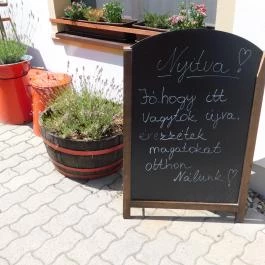 Nyitva!
Jó, hogy itt
vagytok újra,
érezzétek
magatokat
otthon
Nálunk!